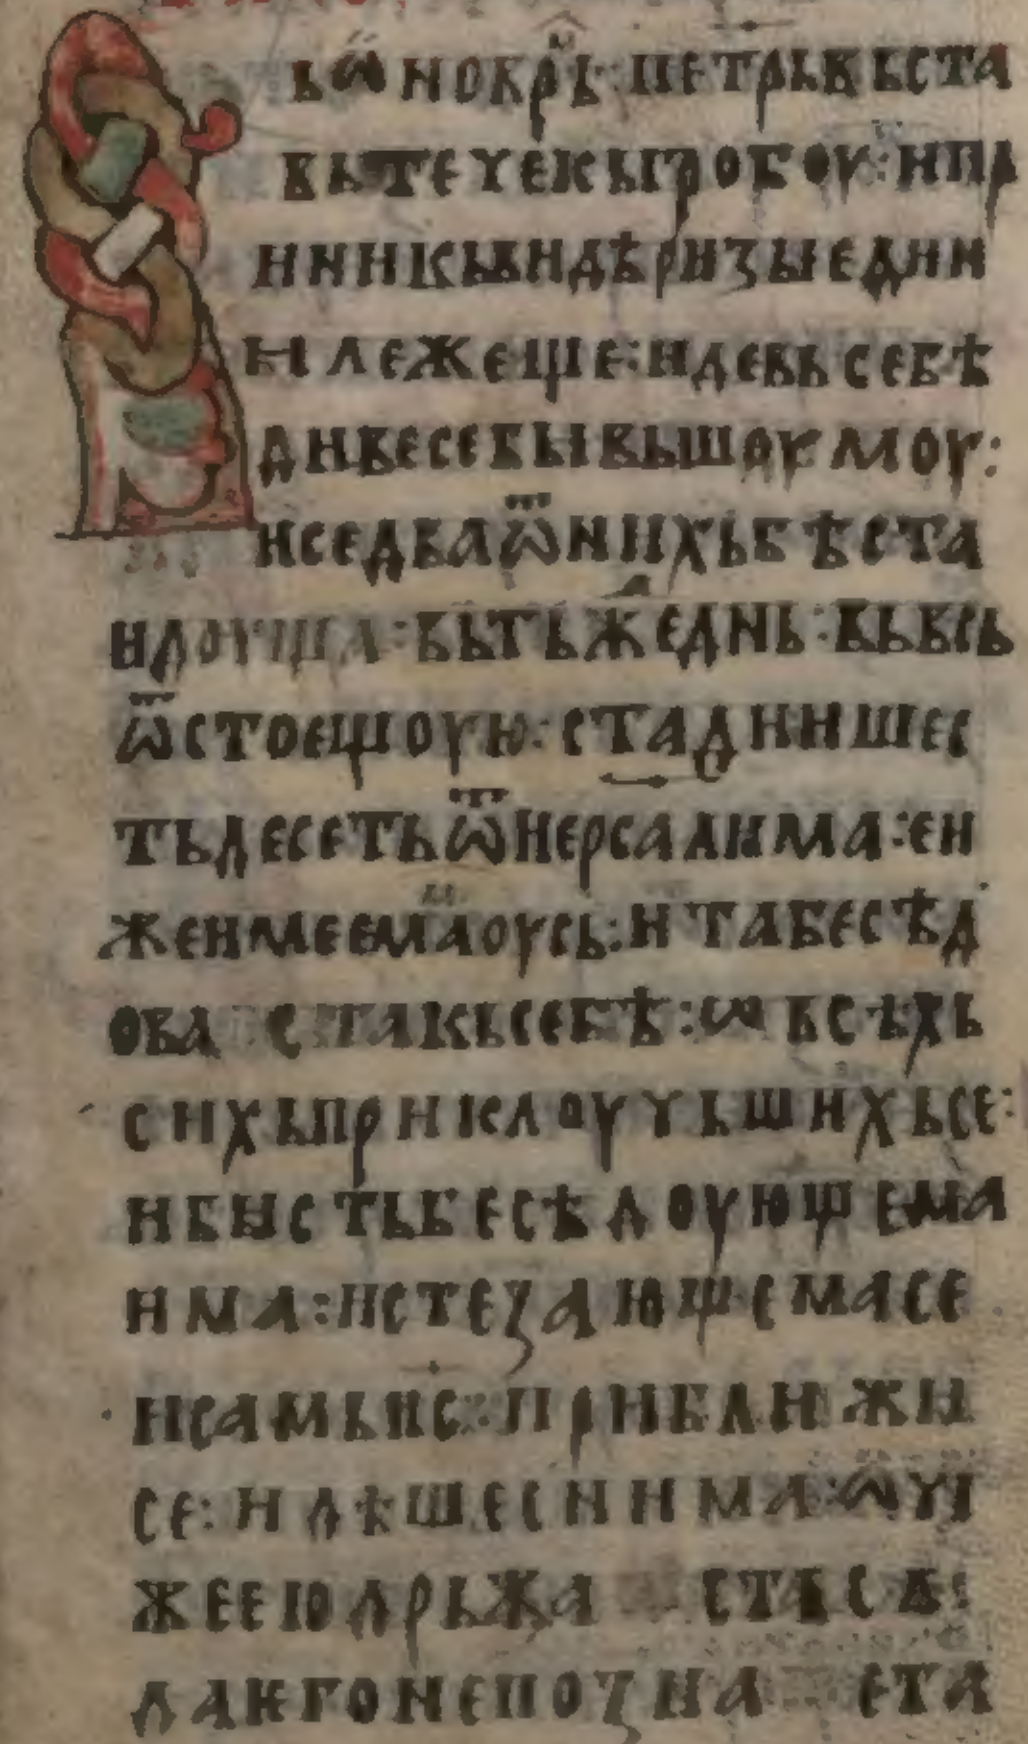 вь ѿноⷨ крⷨѣ: петрьвьста
вьтечекьгробоу: ипрі
ниникьвидѣризыедин
ылежеще: идевьсебѣ
дивесебывьшоумоу:
иседваѿнихьбѣста
идоуща: вьтьждедⷩь: вьвсь
ѿстоещоую: стадиишес
тьдесеть ѿиерсалима: еи
жеимеемаоусь: итабесѣд
ова стаксебѣ: ѡвсѣхь
сихьприклоучьшихьсе:
ибыстьбесѣдоующема
има: истезающемасе
исамьис: приближи
се: идѣшеснима: ѡчі
жееюдрьжа стасѣ:
дакгонепозна ета